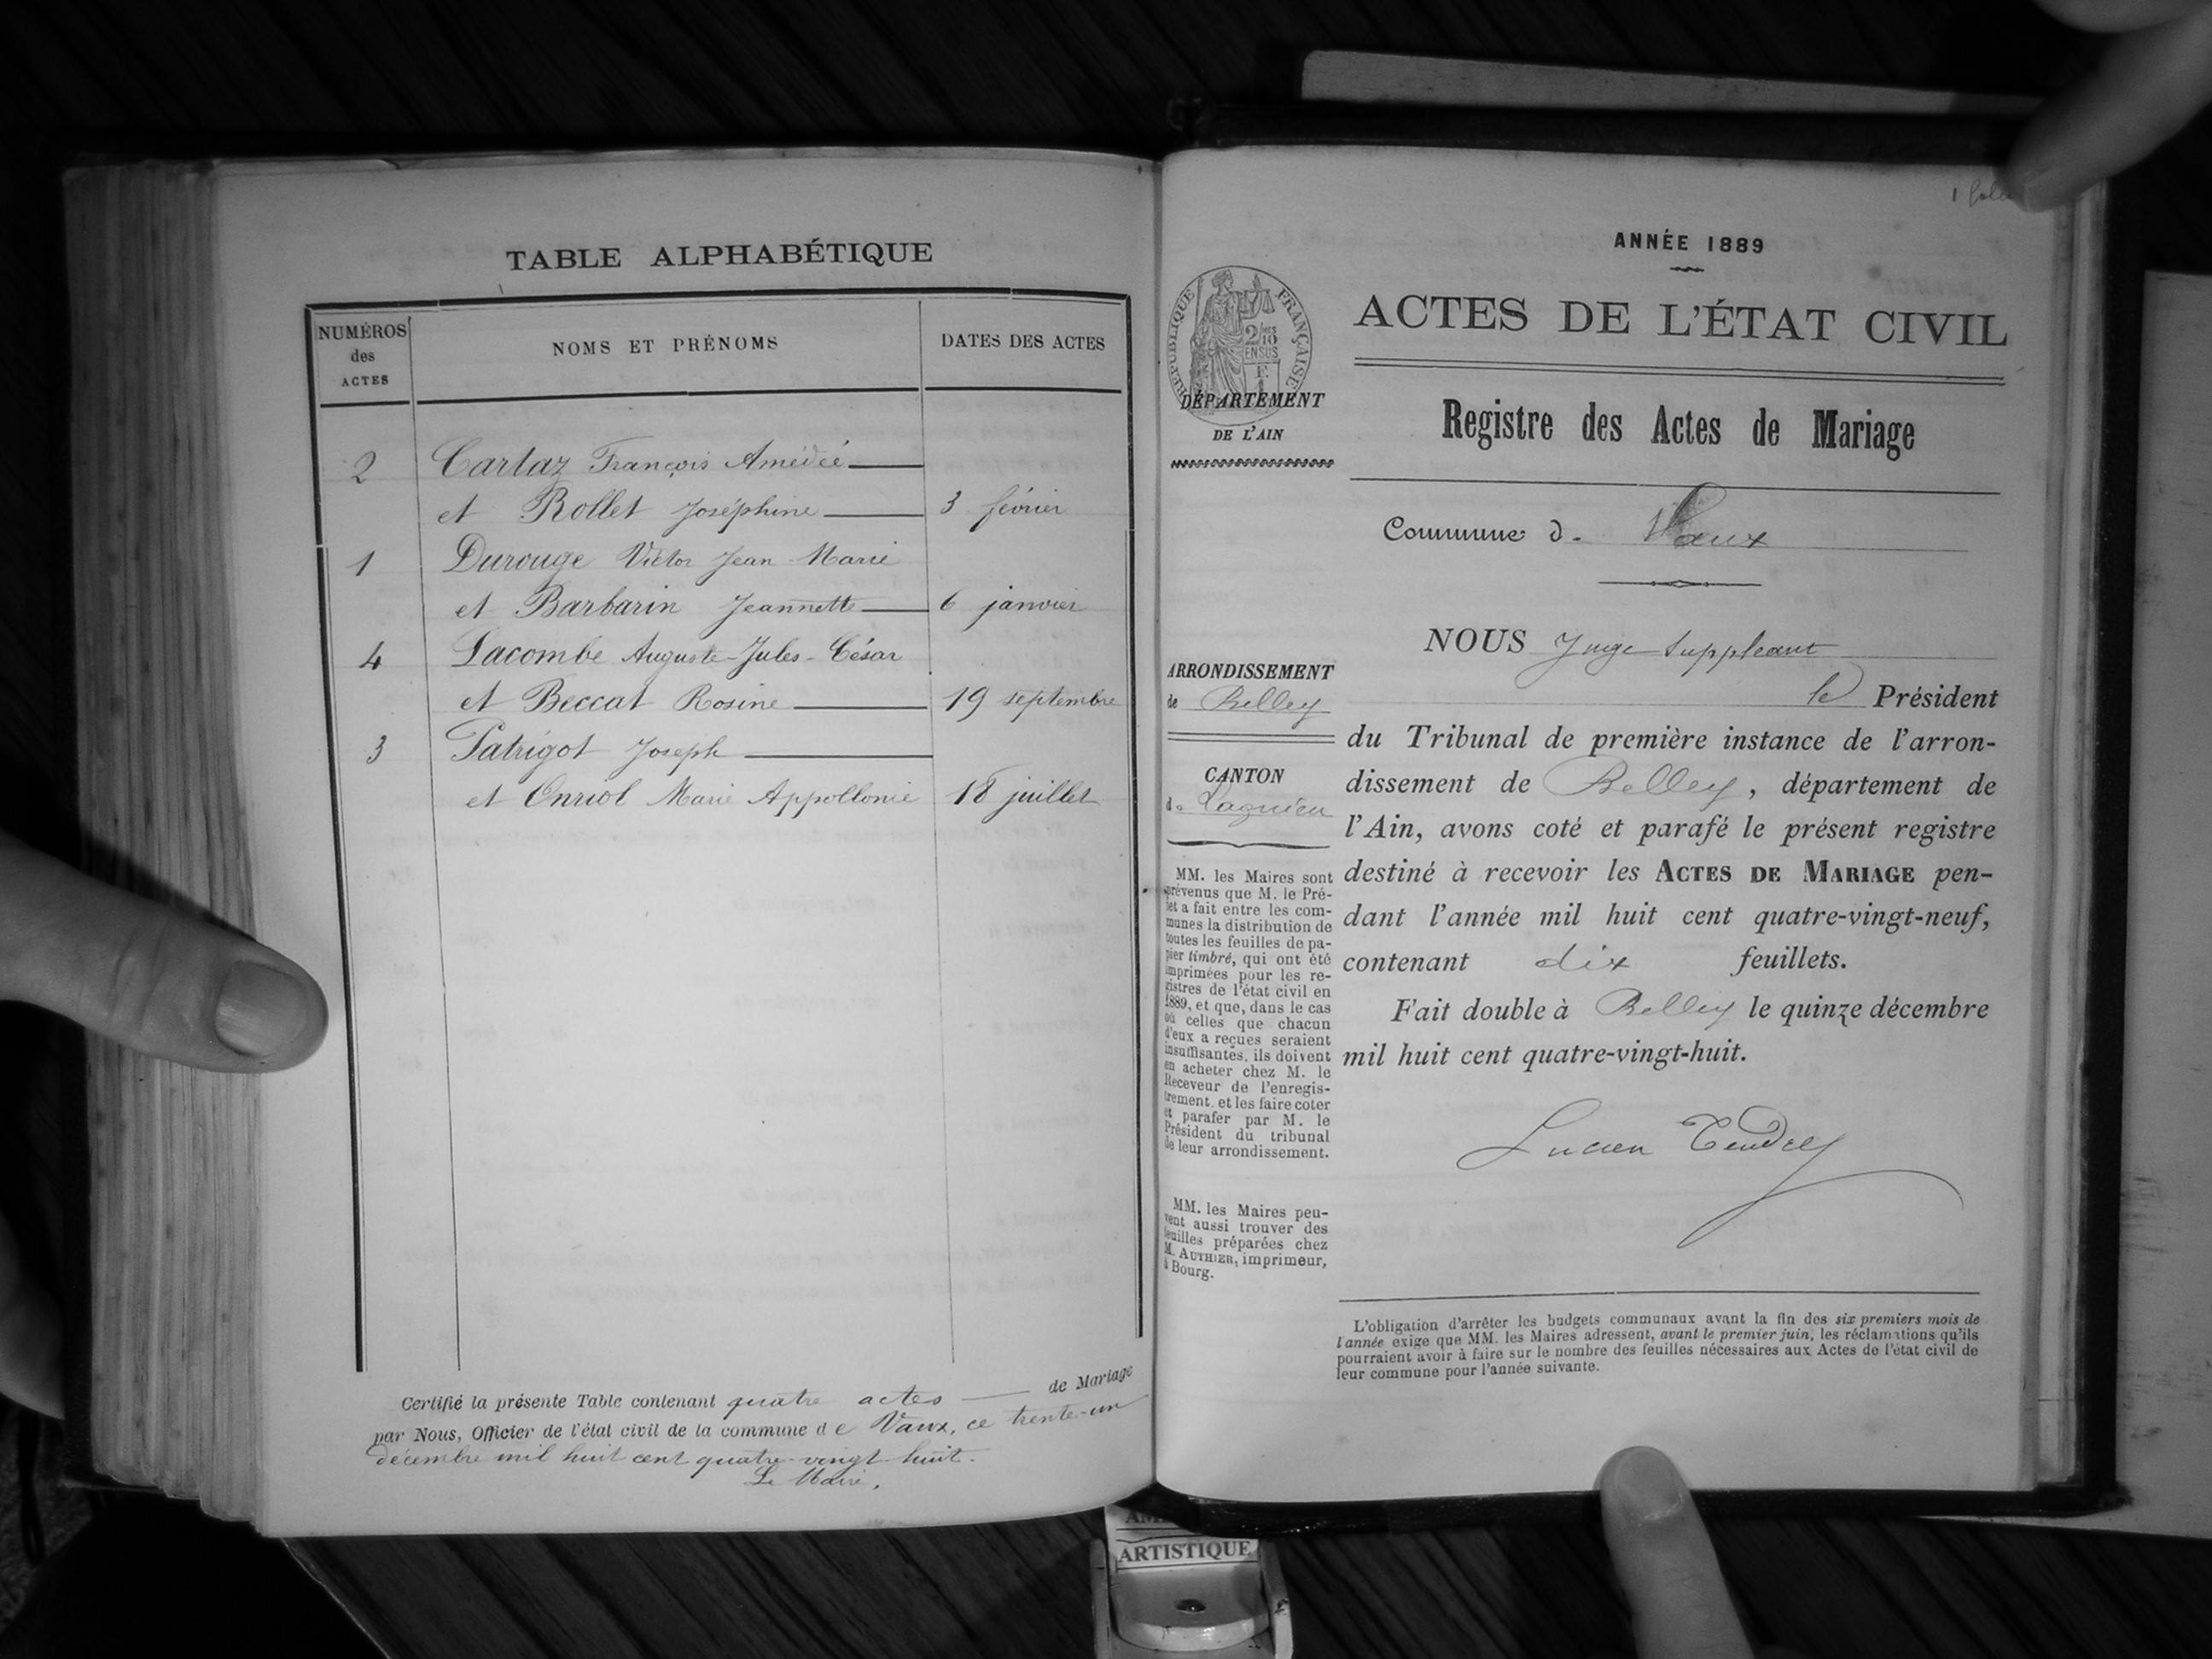 TABLE ALPHABÉTIQUE
NUMÉROS
des
ACTES
NOMS ET PRÉNOMS
DATES DES ACTES
2 Cartaz François Amédée
et Rollet Joséphine 3 février
1 Durouge Victor Jean Marie
et Barbarin Jeannette 6 janvier
4 Lacombe Auguste-Jules-César
et Beccat Rosine 19 septembre
3 Patrigot Joseph
et Onriol Marie Appollonie 18 juillet
Certifié la présente Table contenant quatre actes de Mariage
par Nous, Officier de l'état civil de la commune de Vaux, ce trente-un
décembre mil huit cent quatre-vingt huit.
Le Maire,
1
ANNÉE 1889
RÉPUBLIQUE FRANÇAISE
2/10
EN SUS
DÉPARTEMENT
DE L'AIN
ACTES DE L'ÉTAT CIVIL
Registre des Actes de Mariage
Commune d. Vaux
ARRONDISSEMENT
de Belley
CANTON
de Lagnieu
MM. les Maires sont
prévenus que M. le Pré-
fet a fait entre les com-
munes la distribution de
toutes les feuilles de pa-
pier timbré, qui ont été
imprimées pour les re-
gistres de l'état civil en
1889, et que, dans le cas
où celles que chacun
d'eux a reçues seraient
insuffisantes, ils doivent
en acheter chez M. le
Receveur de l'enregis-
trement, et les faire coter
et parafer par M. le
Président du tribunal
de leur arrondissement.
MM. les Maires peu-
vent aussi trouver des
feuilles préparées chez
M. AUTHIER, imprimeur,
à Bourg.
NOUS Juge Suppléant
le Président
du Tribunal de première instance de l'arron-
dissement de Belley, département de
l'Ain, avons coté et parafé le présent registre
destiné à recevoir les ACTES DE MARIAGE pen-
dant l'année mil huit cent quatre-vingt-neuf,
contenant dix feuillets.
Fait double à Belley le quinze décembre
mil huit cent quatre-vingt-huit.
Lucien Tendrey
L'obligation d'arrêter les budgets communaux avant la fin des six premiers mois de
l'année exige que MM. les Maires adressent, avant le premier juin, les réclamations qu'ils
pourraient avoir à faire sur le nombre des feuilles nécessaires aux Actes de l'état civil de
leur commune pour l'année suivante.
ARTISTIQUE